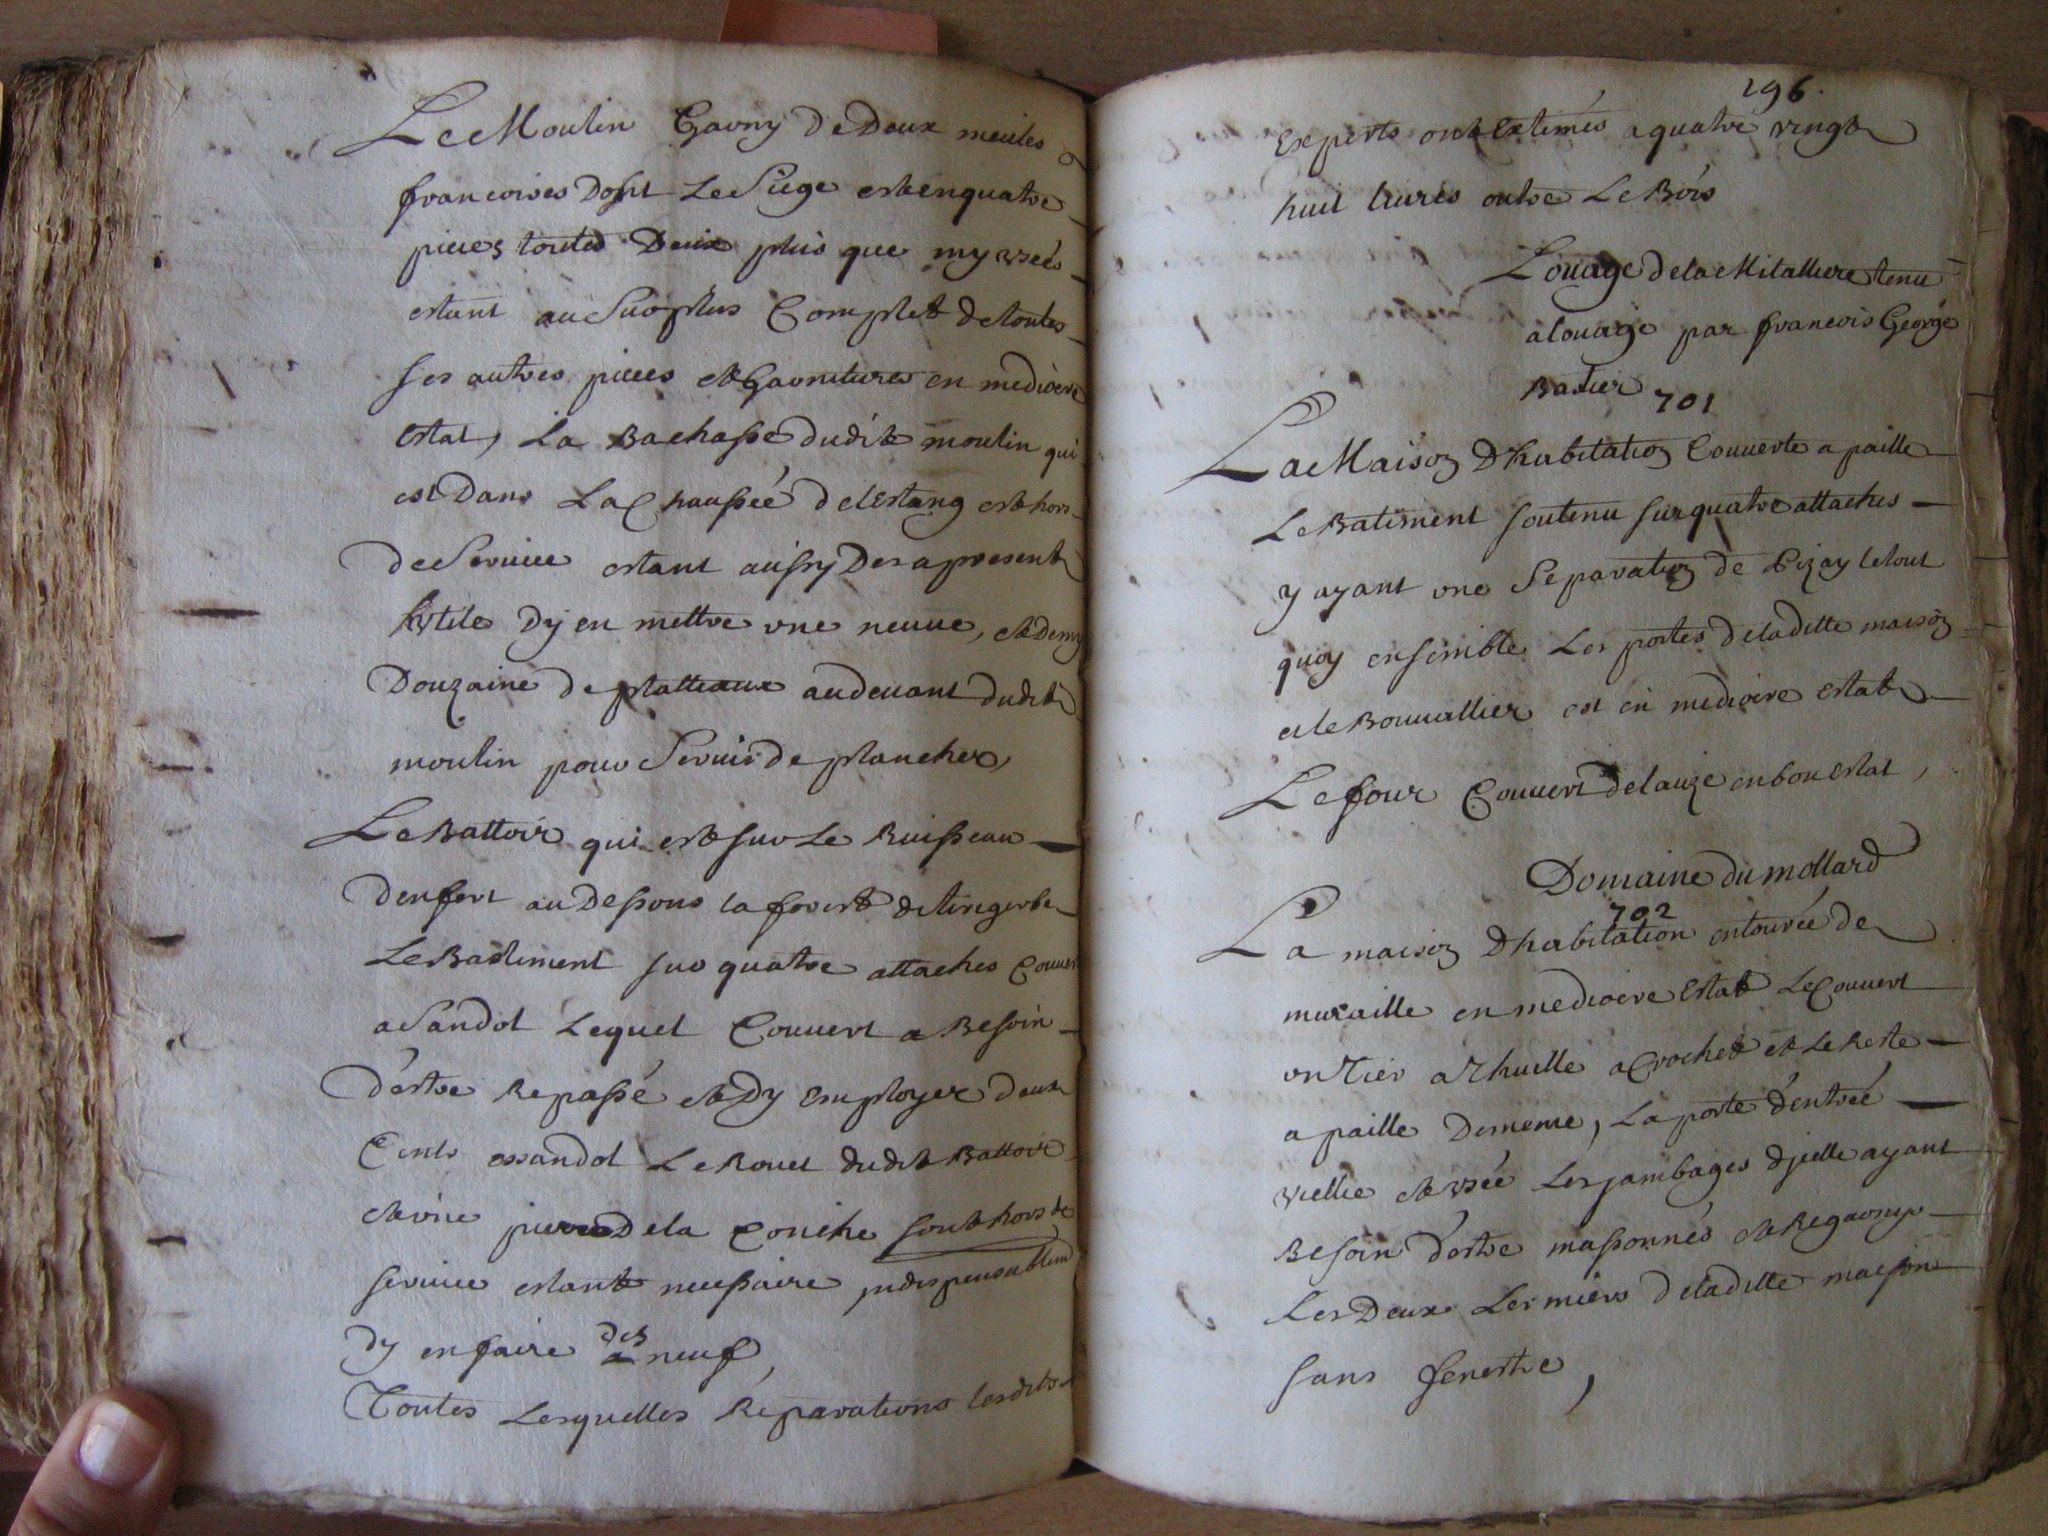 Le Moulin Garny de Deux meules
francoises Dont Le Siege est en quatre
pieces toutes Deux plus que my usées
estant au Surplus Complet de toutes
ses autres pieces et Garnitures en mediocre
Estat, La Bachasse dudit moulin qui
est Dans La Chaussée de lEstang est hors
de Service estant aussy Des a present
Utile Dy en mettre une neuve, et demy
Douzaine de platteaux au devant dudit
moulin pour Servir de plancher,
Le Battoir qui est sur Le Ruisseau
denfert au Dessous la forest de
Le Bastiment sur quatre attaches Couvert
a Sandot Lequel Couvert a Besoin
d'estre Repassé et Dy Employer deux
Cents essandot Le Rouet dudit Battoir
et une pierre De la Conche sont hors de
service estant necessaire jndispensablem
Dy en faire des neuf,
Toutes Lesquelles Réparations lesdits
196.
Experts ont Extimés a quatre vingt
huit livres outre Le Bois
Louage de la Mitalliere tenu
a louage par francois George
Badier
701
La Maison D'habitation Couverte a paille
Le Batiment soutenu sur quatre attaches
y ayant une Separation de Pizay le tout
quoy ensemble Les portes de laditte maison
et le Bouvallier est en mediocre estat
Le four Couvert de lauze en bon estat,
Domaine du mollard
702
La maison D'habitation entourée de
muraille en mediocre Estat Le Couvert
un Tier a Thuille a Crochet et Le Reste
a paille De meme, La porte d'entrée
vielle et usée Les jambages d'jcelle ayant
Besoin d'estre massonnés et Regarnys
Les Deux Lermiers de laditte maison
sans fenestre,